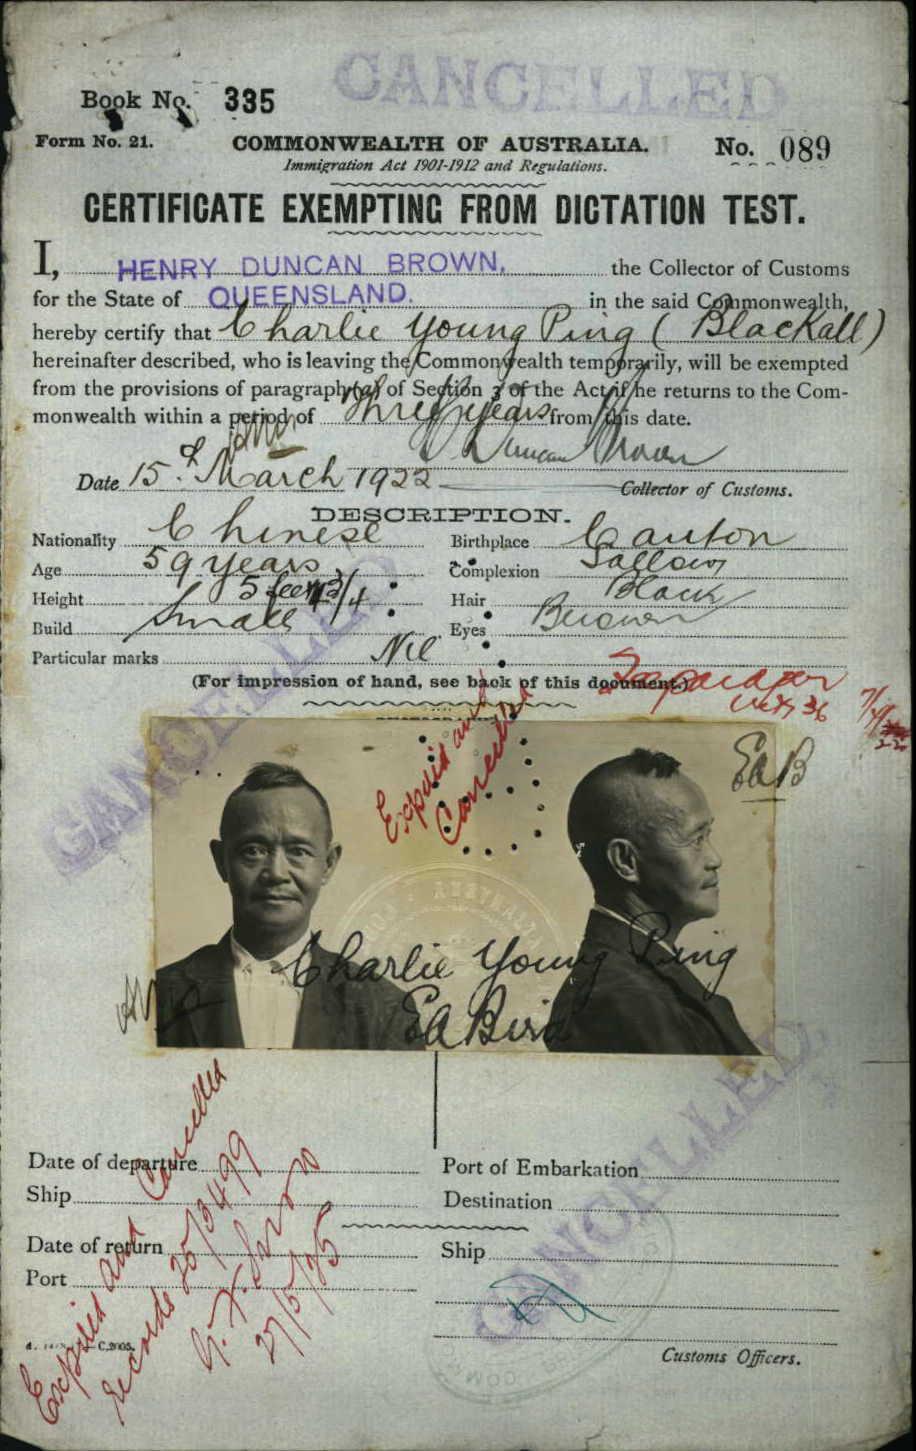 CANCELLED
Book No. 335
Form No. 21.
COMMONWEALTH OF AUSTRALIA.
No. 089
Immigration Act 1901-1912 and Regulations.
CERTIFICATE EXEMPTING FROM DICTATION TEST.
I, HENRY DUNCAN BROWN, the Collector of Customs
for the State of QUEENSLAND. in the said Commonwealth,
hereby certify that Charlie Young Ping (Blackall)
hereinafter described, who is leaving the Commonwealth temporarily, will be exempted
from the provisions of paragraph (a) of Section 3 of the Act if he returns to the Com-
monwealth within a period of three years from this date.
H Duncan Brown
Date 15th March 1922
Collector of Customs.
DESCRIPTION.
Nationality Chinese
Birthplace Canton
Age 59 years
Complexion Sallow
Height 5 feet 1 3/4
Hair Black
Build Small
Eyes Brown
Particular marks Nil
(For impression of hand, see back of this document.)
36
CANCELLED
Expired and
Cancelled
EaB
Charlie Young Ping
Ea Bird
Date of departure
Port of Embarkation
Ship
Destination
Date of return
Ship
Port
CANCELLED
Expired and Cancelled
records 25/3499
27/5/25
C.2005.
Customs Officers.